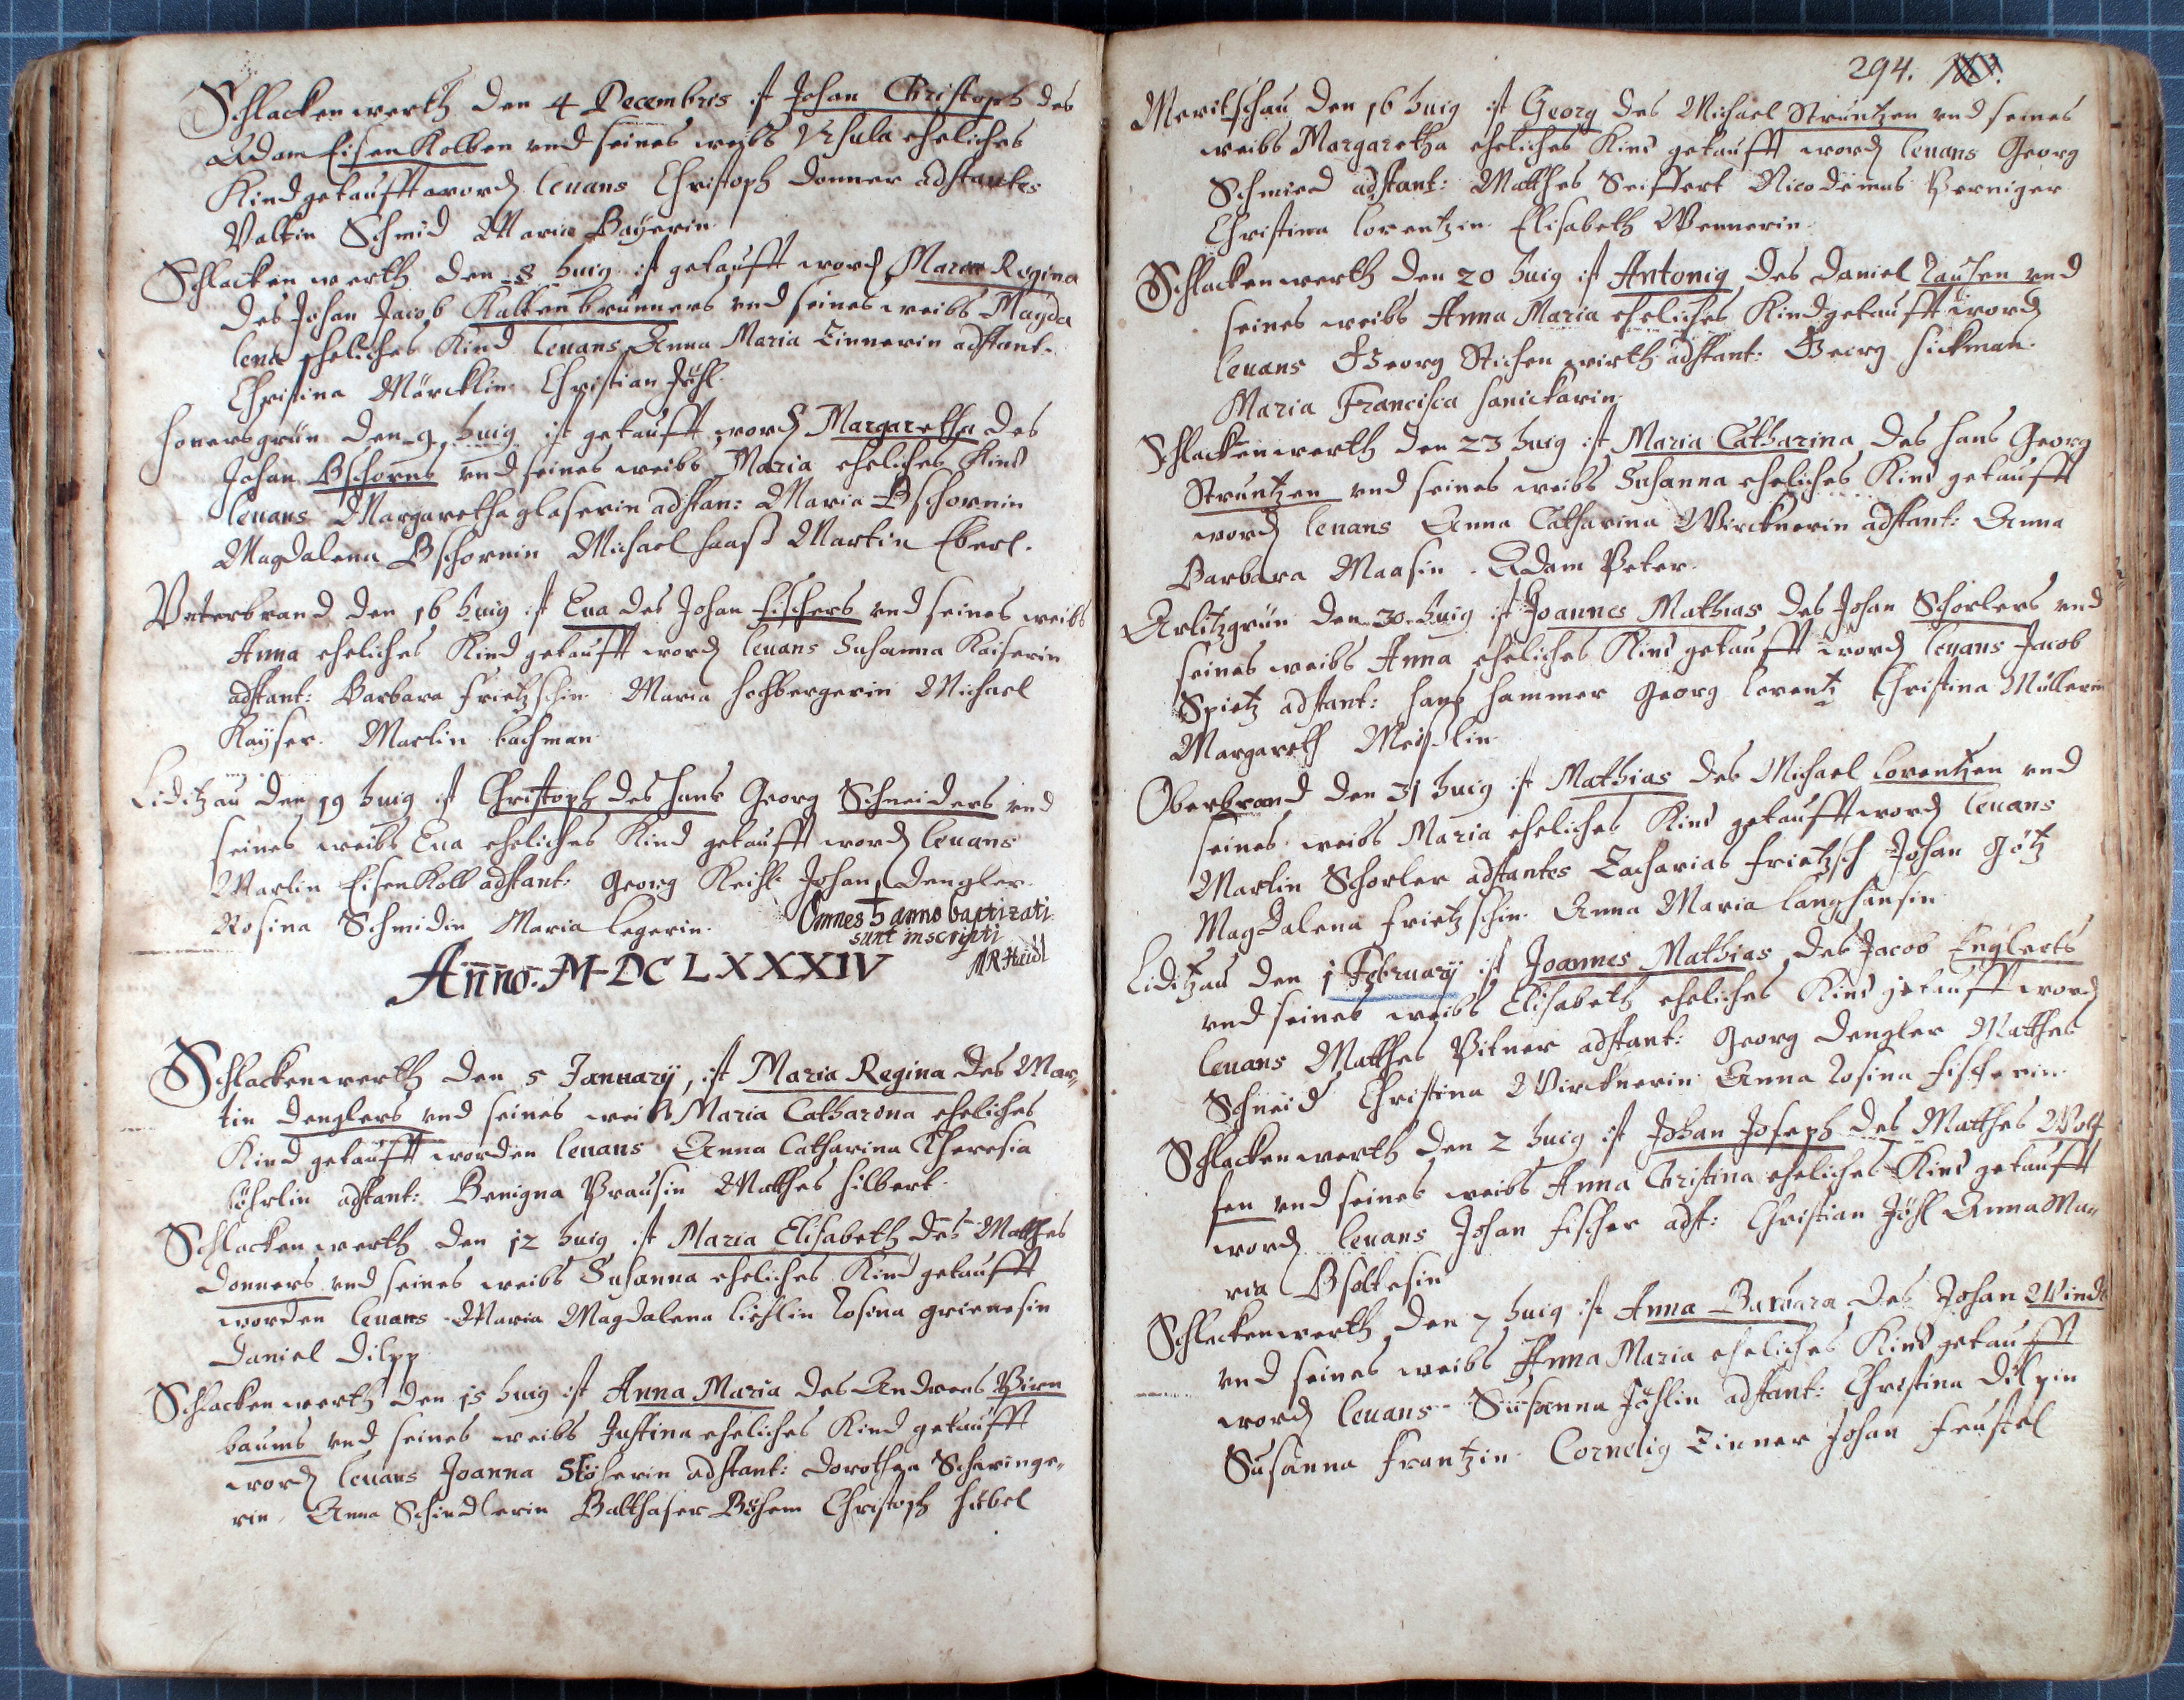 Schlackenwerth den 4 Decembris ist Johan Christoph des
Adam Eisenkolben vnd seines weibs Vrsula eheliches
Kind getaufft word levans Christoph Donner adstantes
Valtin Schmid Maria Bayerin
Schlackenwerth den 8 huig ist getaufft word Maria Regina
des Johan Jacob Kaltenbrunners vnd seines weibs Magda
lena eheliches Kind levans Anna Maria Zinnerin adstant.
Christina Märcklin Christian Jöhl.
Honersgrün den 9 huig ist getaufft word Margaretha des
Johan Bschorns vnd seines weibs Maria eheliches Kind
levans Margaretha glaserin adstan: Maria Bschornin
Magdalena Bschornin Michael Haasß Martin Eberl.
Vnterbrand den 16 huig ist Eva des Johan Fischers vnd seines weibs
Anna eheliches Kind getaufft word levans Susanna Kaiserin
adstant: Barbara Frietzschin Maria Hochbergerin Michael
Kayser. Martin bachman
Liditzau den 19 huig ist Christoph des Hans Georg Schneiders vnd
seines weibs Eva eheliches Kind getaufft word levans
Martin Eisenkolb adstant: Georg Dengler
Rosina Schmidin Maria legerin.
Omnes h anno baptizati
sunt inscripti
Anno. M-DC LXXXIV
Schlackenwerth den 5 January, ist Maria Regina des Mar„
tin Denglers vnd seines weibs Maria Catharona eheliches
Kind getaufft worden levans Anna Catharina Theresia
adstant: Benigna Prausin Matthes Hilbert.
Schlackenwerth den 12 huig ist Maria Elisabeth des Matthes
Donners vnd seines weibs Susanna eheliches Kind getaufft
worden levans Maria Magdalena Rosina grienesin
Daniel Dilpp
Schlackenwerth den 15 huig ist Anna Maria des Andreas Birn
baums vnd seines weibs Justina eheliches Kind getaufft
word levans Joanna Stöherin adstant: Dorothea Scheringe„
rin Anna Schindlerin Balthaser Böhem Christoph Hübel
294.
Meritschau den 16 huig ist Georg des Michael Struntzen vnd seines
weibs Margaretha eheliches Kind getaufft word levans Georg
Schmied adstant: Matthes Seiffert Nicodemus Perniger
Christina Lorentzin Elisabeth Wennerin
Schlackenwerth den 20 huig ist Antonig des Daniel vnd
seines weibs Anna Maria eheliches Kind getaufft word
levans Georg Stichenwirth adstant: Georg Hickman
Maria Francisca Hanickarin
Schlackenwerth den 23 huig ist Maria Catharina des Hans Georg
Struntzen vnd seines weibs Susanna eheliches Kind getaufft
word levans Anna Catharina Wircknerin adstant: Anna
Barbara Maasin. Adam Peter
Arlitzgrün den 30 huig ist Joannes Mathias des Johan Schorlers vnd
seines weibs Anna eheliches Kind getaufft word levans Jacob
Spietz adstant: Hans Hammer Georg Lorentz Christina Müllerin
Margareth Meislin
Oberbrand den 31 huig ist Mathias des Michael Lorentzen vnd
seines weibs Maria eheliches Kind getaufft word levans
Martin Schorler adstantes Zacharias Frietzsch Johan Götz
Magdalena Frietzschin Anna Maria Langhansin
Liditzau den 1 February ist Joannes Mathias des Jacob Englerts
vnd seines weibs Elisabeth eheliches Kind getaufft word
levans Matthes Pitner adstant: Georg Dengler Matthes
Schneid Christina Wircknerin Anna Rosina Fischerin
Schlackenwerth den 2 huig ist Johan Joseph des Matthes Wolf
fen vnd seines weibs Anna Christina eheliches Kind getaufft
word levans Johan Fischer adst: Christian Jöhl Anna Ma„
ria
Schlackenwerth den 7 huig ist Anna Barbara des Johan
vnd seines weibs Anna Maria eheliches Kind getaufft
word levans Susanna Jöhlin adstant: Christina Dilpin
Susanna Frantzin Cornelig Zinner Johan Feustel